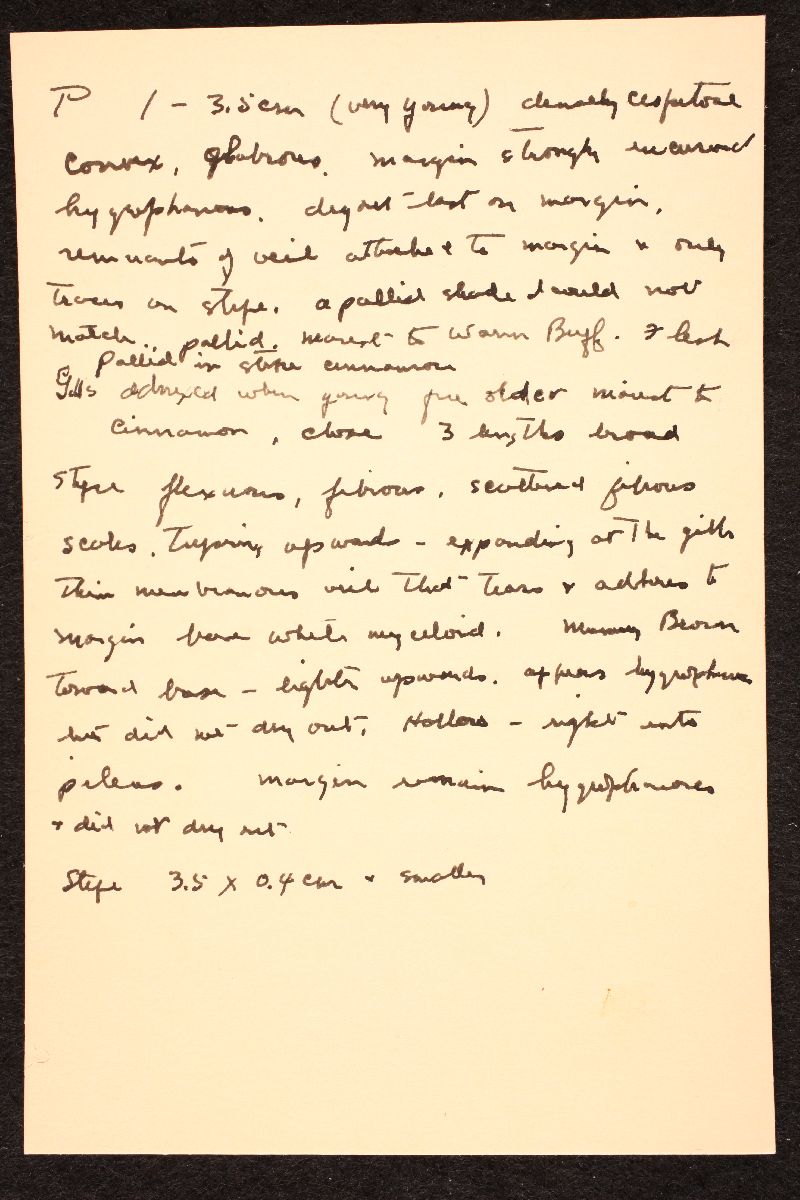 P 1 - 3.5 cm (very young) densely cespitose
convex, glabrous. margin strongly incurved
hygrophanous. dry out last on margin.
remnants of veil attached to margin & only
traces on stipe. a pallid shade I could not
match.. pallid. nearest to Warm Buff. Flesh
pallid in stipe cinnamon
Gills adnexed when young free older nearest to
cinnamon, close 3 lengths broad
Stipe flexuous, fibrous, scattered fibrous
scales. Tapering upwards - expanding at the gills
thin membranous veil that tears & adheres to
margin base white myceloid. Mummy Brown
toward base - lighter upwards. appears hygrophanous
but did not dry out. Hollow - right into
pileus. margin remain hygrophanous
& did not dry out
Stipe 3.5 X 0.4 cm & smaller